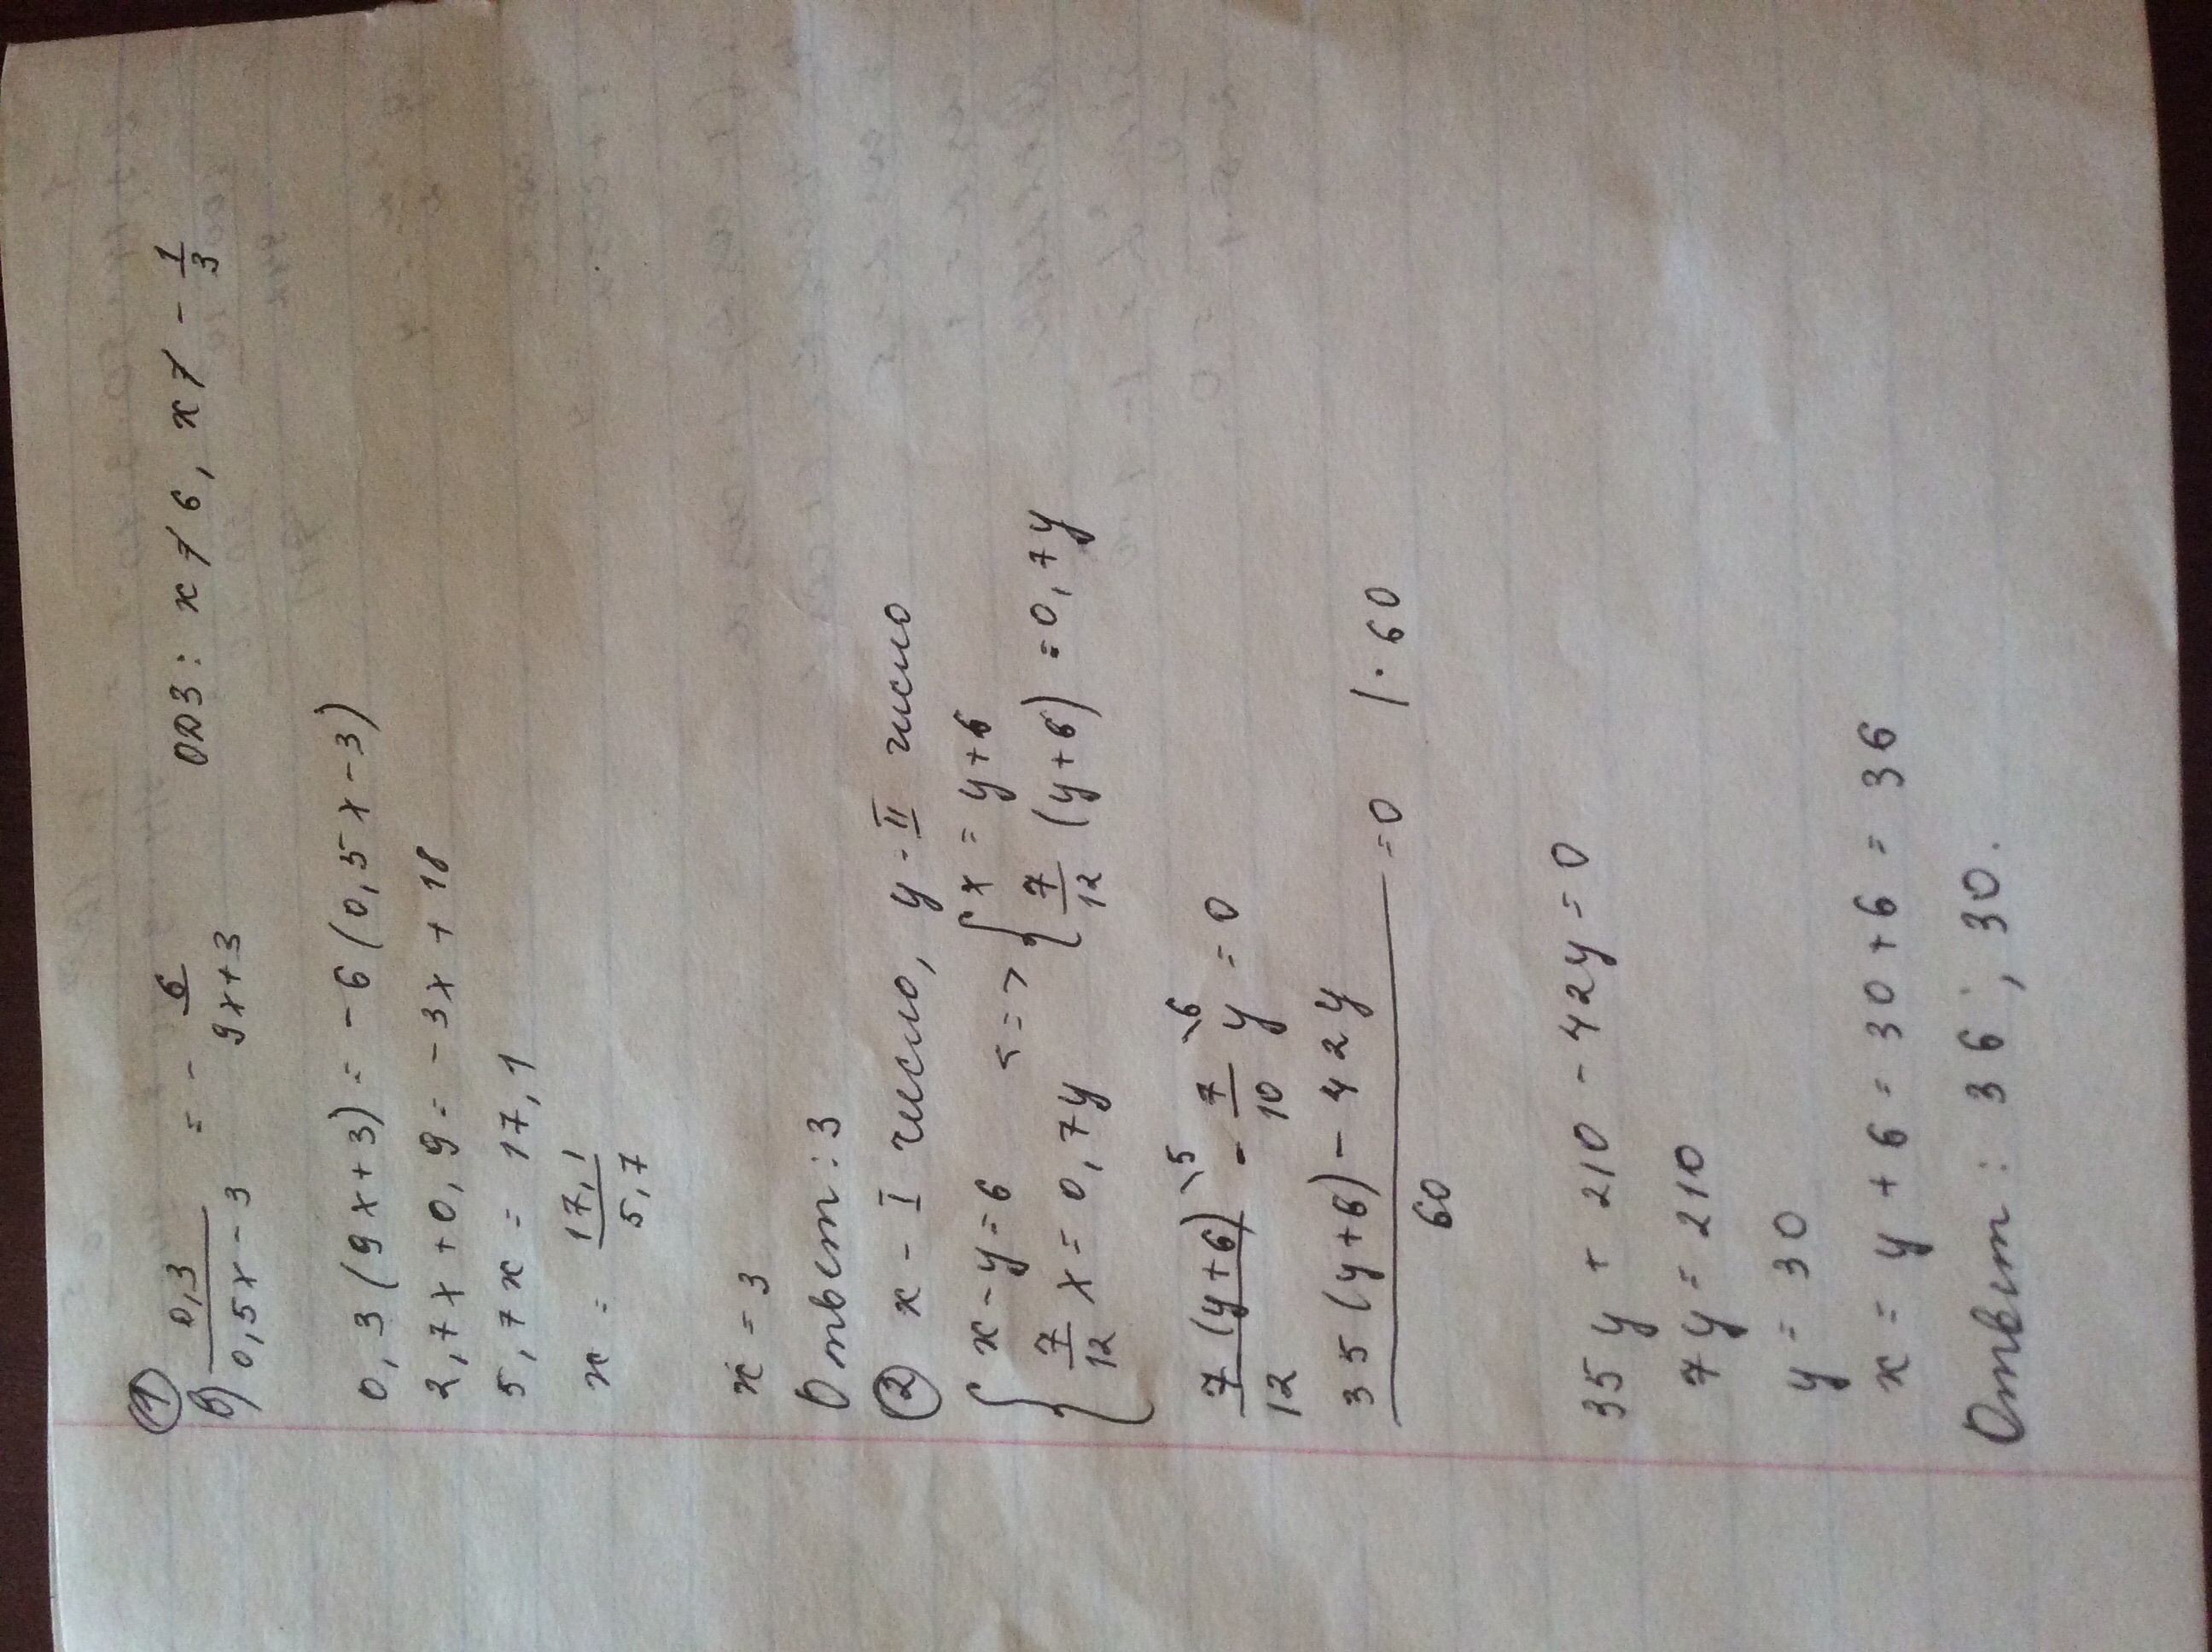 ①
в) 0,3/(0,5x-3) = - 6/(9x+3) ОДЗ: x ≠ 6, x ≠ - 1/3
0,3(9x+3) = -6(0,5x-3)
2,7x+0,9 = -3x+18
5,7x = 17,1
x = 17,1/5,7
x = 3
Ответ: 3
② x - I число, y - II число
{ x-y=6 <=> { x = y+6
7/12 x = 0,7y 7/12 (y+6) = 0,7y
7(y+6)/12 \5 - 7/10 y \6 = 0
(35(y+6) - 42y)/60 = 0 |·60
35y + 210 - 42y = 0
7y = 210
y = 30
x = y+6 = 30+6 = 36
Ответ: 36; 30.